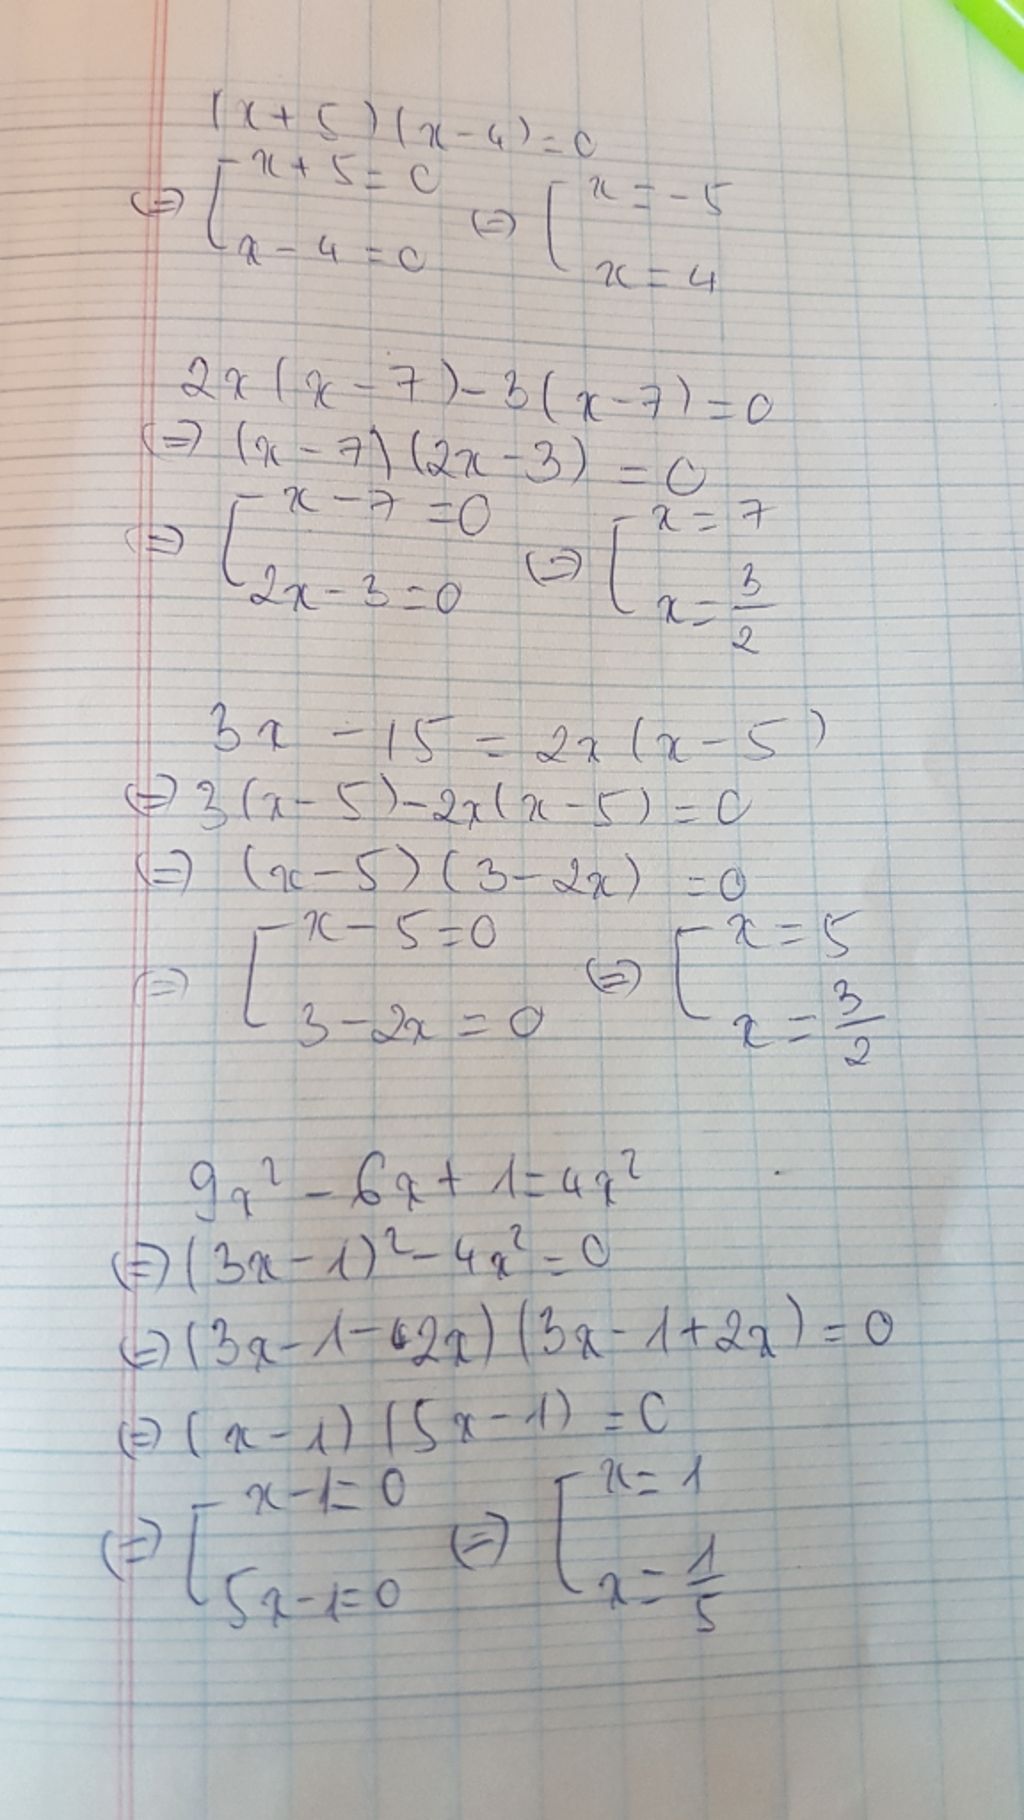 (x+5)(x-4)=0
⇔ [ x+5=0 ⇔ [ x=-5
x-4=0 x=4
2x(x-7)-3(x-7)=0
⇔ (x-7)(2x-3)=0
⇔ [ x-7=0 ⇔ [ x=7
2x-3=0 x=3/2
3x-15=2x(x-5)
⇔ 3(x-5)-2x(x-5)=0
⇔ (x-5)(3-2x)=0
⇔ [ x-5=0 ⇔ [ x=5
3-2x=0 x=3/2
9x²-6x+1=4x²
⇔ (3x-1)²-4x²=0
⇔ (3x-1-2x)(3x-1+2x)=0
⇔ (x-1)(5x-1)=0
⇔ [ x-1=0 ⇔ [ x=1
5x-1=0 x=1/5